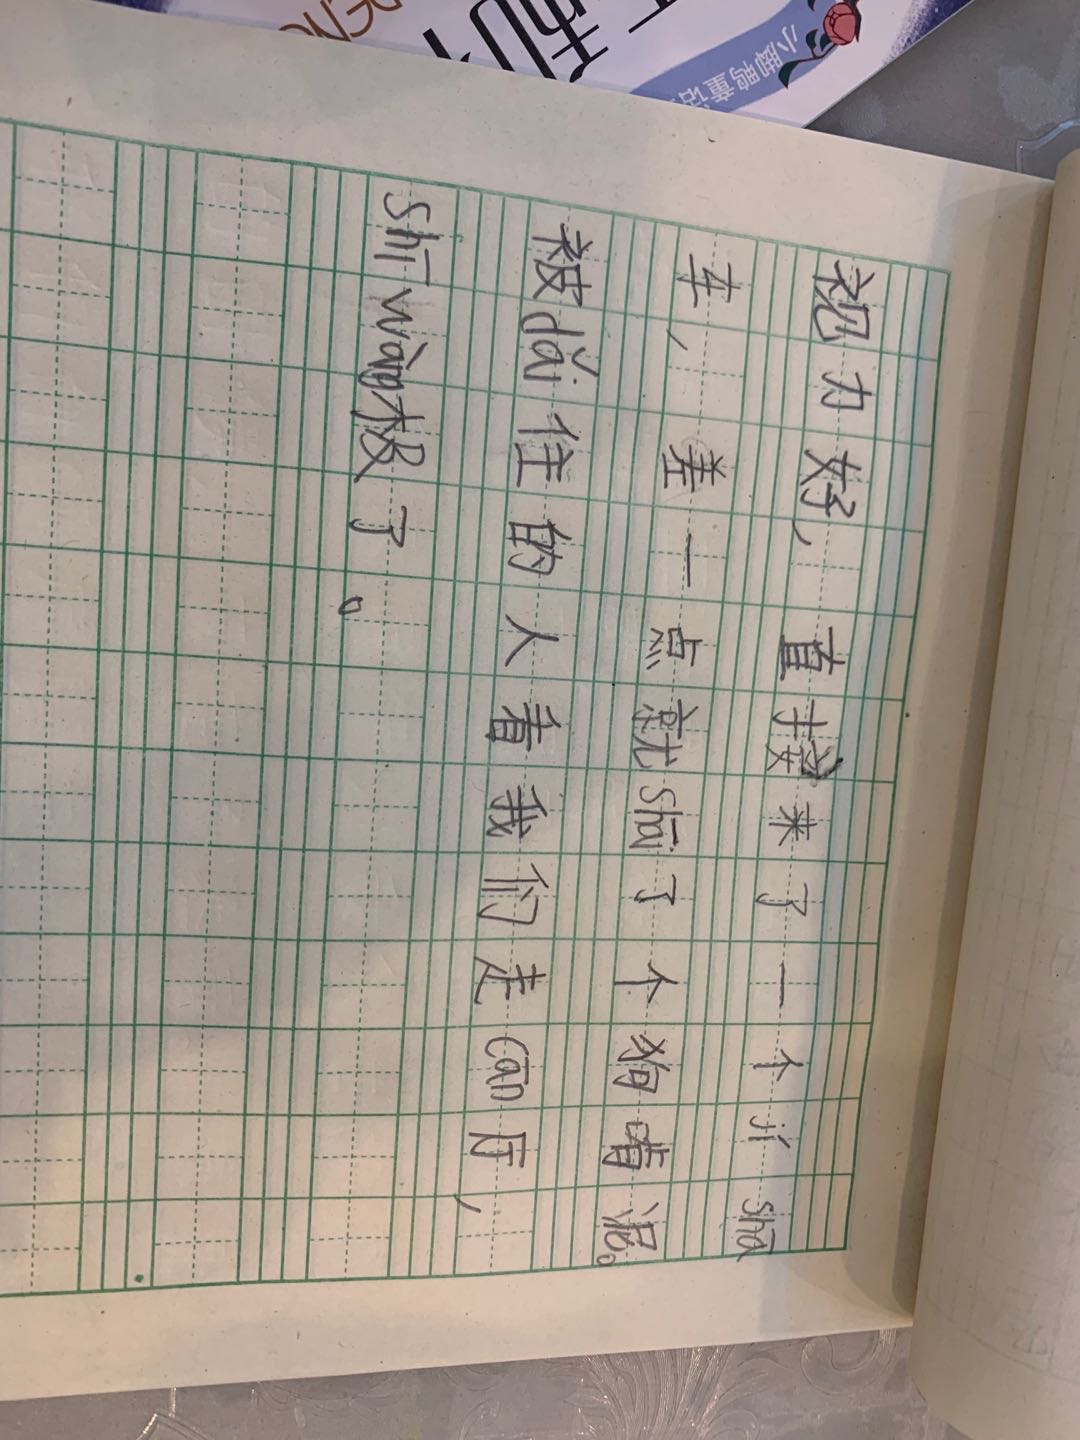 小脚鸭童话
视力好，直接来了一个jí shā
车，差一点就shāi了个狗啃泥。
被dǎi住的人看我们走cān厅，
shī wàng极了。